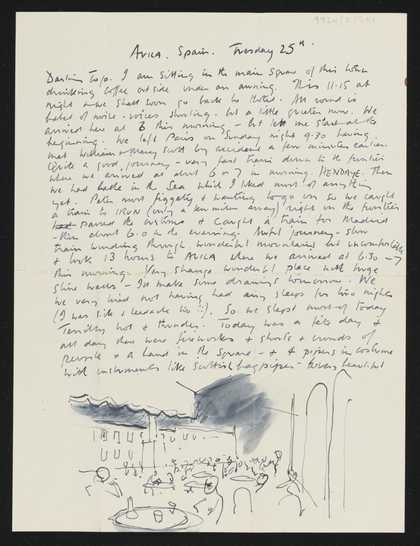 AVILA. Spain. Tuesday 25th.
Darling Jojo. I am sitting in the main square of this town
drinking coffee outside under an awning. It is 11.15 at
night & we shall soon go back to Hotel. All round is
babel of noise - voices shouting. but a little quieter now. We
arrived here at 6 this morning - But let me start at the
beginning. We left Paris on Sunday night 9.30 having
met William & Mary Scott by accident a few minutes earlier.
Quite a good journey - very fast train down to the frontier
where we arrived at about 6 or 7 in morning. HENDAYE. Then
we had bathe in the sea which I liked most of anything
yet. Peter most fidgetty & wanting to go on so we caught
a train to IRUN (only a few miles away) right on the frontier
passed the customs & caught a train for Madrid
- this about 6.0 in the evening. Awful journey - slow
train winding through wonderful mountains but uncomfortable
& took 13 hours to AVILA where we arrived at 6.30 - 7
this morning. Very strange wonderful place with huge
stone walls - I'll make some drawings tomorrow. We
we very tired not having had any sleep for two nights
(I was sick & headache too!!). So we slept most of today
Terribly hot & thunder. Today was a fete day &
all day there were fireworks & shouts & crowds of
people & a band in the square - & & pipers in costume
with instruments like Scottish bagpipes - beautiful